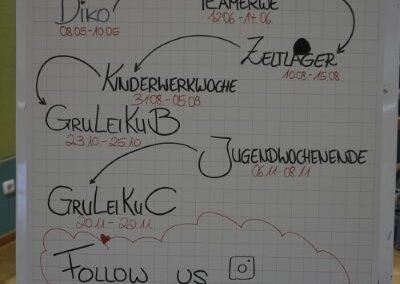 DIKO
08.05-10.05
TEAMERWE
12.06-14.06
ZELTLAGER
10.08-15.08
KINDERWERKWOCHE
31.08-05.09
GRULEIKUB
23.10-25.10
JUGENDWOCHENENDE
06.11-08.11
GRULEIKUC
20.11-22.11
FOLLOW US